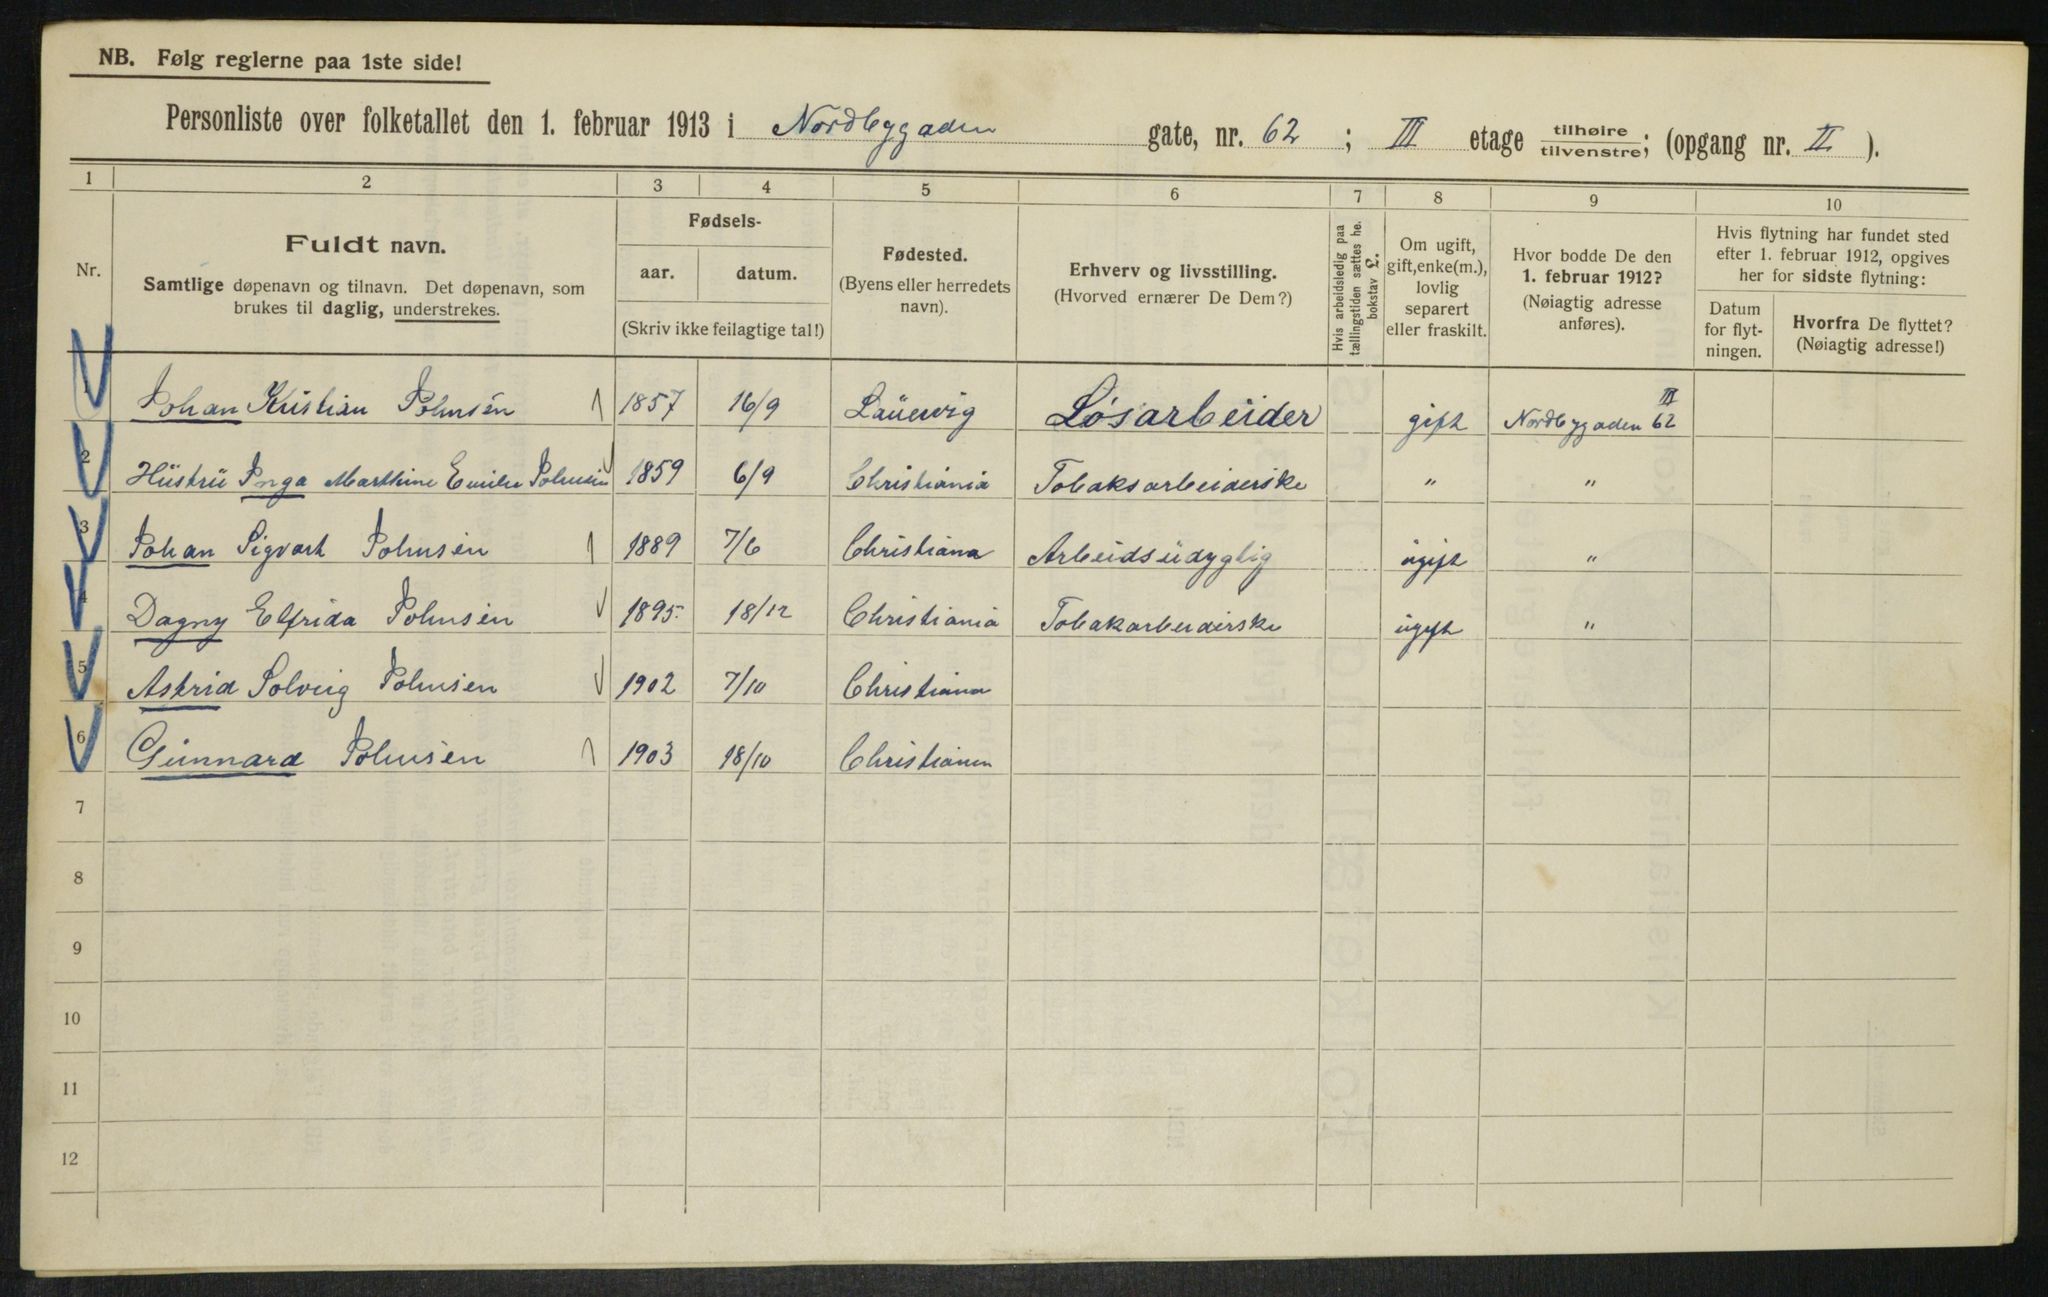 NB. Følg reglerne paa 1ste side!
Personliste over folketallet den 1. februar 1913 i Nordbygaden gate, nr. 62 ; III etage tilhøire / tilvenstre; (opgang nr. II ).
1 2 3 4 5 6 7 8 9 10
Nr.
Fuldt navn.
Samtlige døpenavn og tilnavn. Det døpenavn, som
brukes til daglig, understrekes.
Fødsels-
aar. datum.
(Skriv ikke feilagtige tal!)
Fødested.
(Byens eller herredets
navn).
Erhverv og livsstilling.
(Hvorved ernærer De Dem?)
Hvis arbeidsledig paa
tællingstiden sættes he.
bokstav L.
Om ugift,
gift, enke(m.),
lovlig
separert
eller fraskilt.
Hvor bodde De den
1. februar 1912?
(Nøiagtig adresse
anføres).
Hvis flytning har fundet sted
efter 1. februar 1912, opgives
her for sidste flytning:
Datum
for flyt-
ningen.
Hvorfra De flyttet?
(Nøiagtig adresse!)
1 Johan Kristian Johnsen 1857 16/9 Laüervig Løsarbeider gift Nordbygaden 62 III
2 Hüstrü Inga Marthine Emilie Johnsen 1859 6/9 Christiania Tobaksarbeiderske " "
3 Johan Sigvart Johnsen 1889 7/6 Christiana Arbeidsüdygtig ügift "
4 Dagny Elfrida Johnsen 1895. 18/12 Christiania Tobakarbeiderske ügift "
5 Astrid Solveig Johnsen 1902 7/10 Christiana
6 Günnard Johnsen 1903 18/10 Christianen
7
8
9
10
11
12